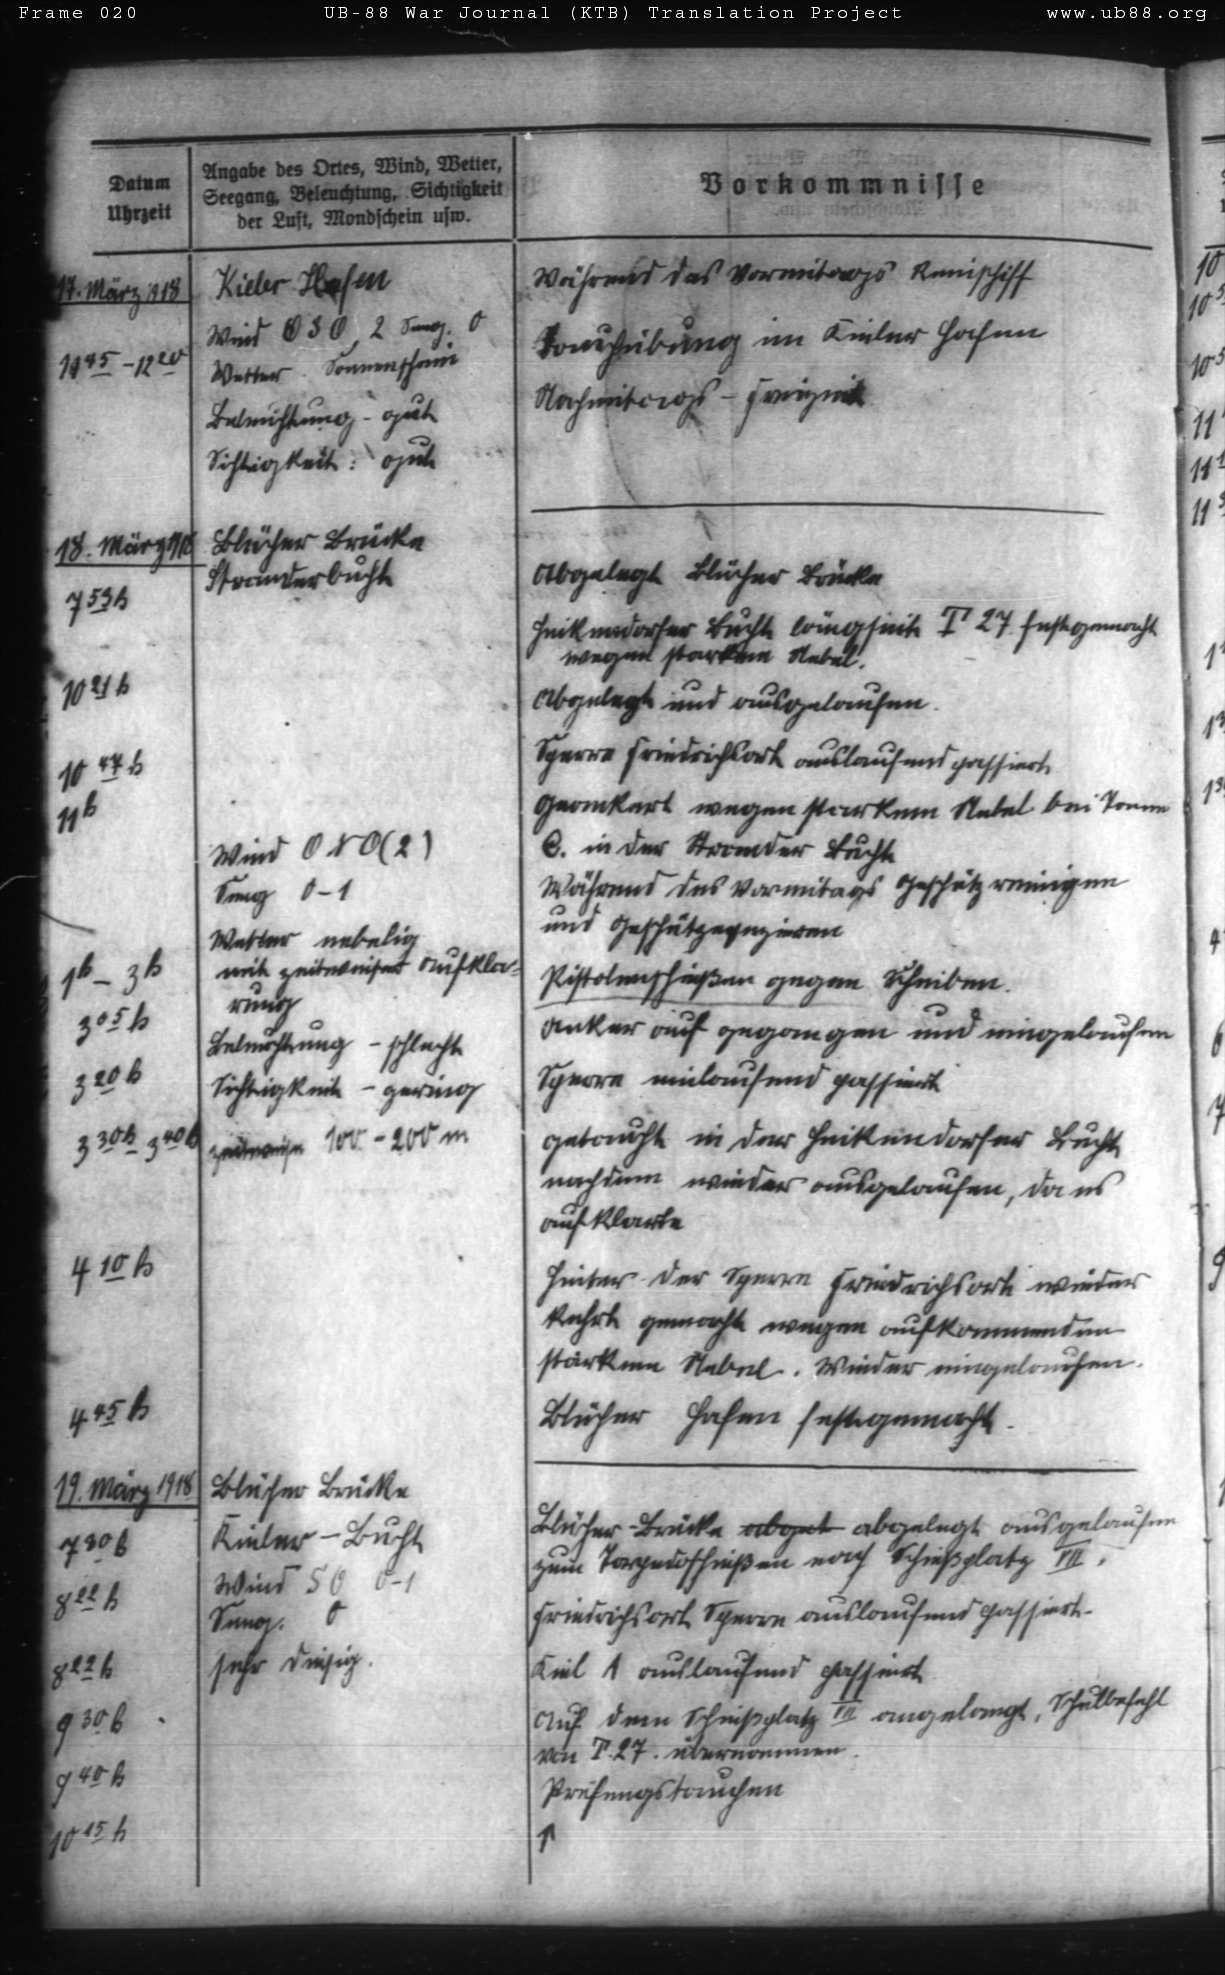 Frame 020
UB-88 War Journal (KTB) Translation Project
www.ub88.org
Datum
Uhrzeit
Angabe des Ortes, Wind, Wetter,
Seegang, Beleuchtung, Sichtigkeit
der Luft, Mondschein usw.
Vorkommnisse
17. März 1918
Kieler Hafen
Während des Vormitags Reinschiff
Wind OSO 2 Seeg. 0
11 45 - 12 20
Tauchübung im Kieler Hafen
Wetter Sonnenschein
Nachmitags - Freizeit
Beleuchtung - gut
Sichtigkeit: gut
18. März 1918
Blücher Brücke
Stranderbucht
7 53 h
Abgelegt Blücher Brücke
Heikendorfer Bucht längseit T 27 festgemacht
wegen starken Nebel.
10 21 h
Abgelegt und ausgelaufen.
10 47 h
Sperre Friedrichsort auslaufend passiert
11 h
Geankert wegen starkem Nebel bei Tonne
Wind ONO (2)
C. in der Strander Bucht
Seeg 0-1
Während des Vormitags Geschütz reinigen
und Geschützexerzieren
Wetter nebelig
mit zeitweiser Aufkla-
rung
1 h - 3 h
Pistolenschießen gegen Scheiben.
3 05 h
Anker auf gegangen und eingelaufen
Beleuchtung - schlecht
3 20 h
Sichtigkeit - gering
Sperre einlaufend passiert
3 30 h - 3 40 h
zeitweise 100 - 200 m
getaucht in der Heikendorfer Bucht
nachdem wieder ausgelaufen, da es
aufklarte
4 10 h
Hinter der Sperre Friedrichsort wieder
kehrt gemacht wegen aufkommenden
starken Nebel. Wieder eingelaufen.
4 45 h
Blücher Hafen festgemacht.
19. März 1918
Blücher Brücke
7 30 h
Kieler - Bucht
Blücher-Brücke abget abgelegt ausgelaufen
zum Torpedoschießen nach Schießplatz VII.
Wind SO 0-1
8 22 h
Seeg. 0
Friedrichsort Sperre auslaufend passiert.
8 22 h
sehr diesig.
Kiel A auslaufend passiert
9 30 h
Auf dem Schießplatz VII angelangt, Schulbefehl
von T. 27. übernommen.
9 40 h
Prüfungstauchen
10 15 h
↑